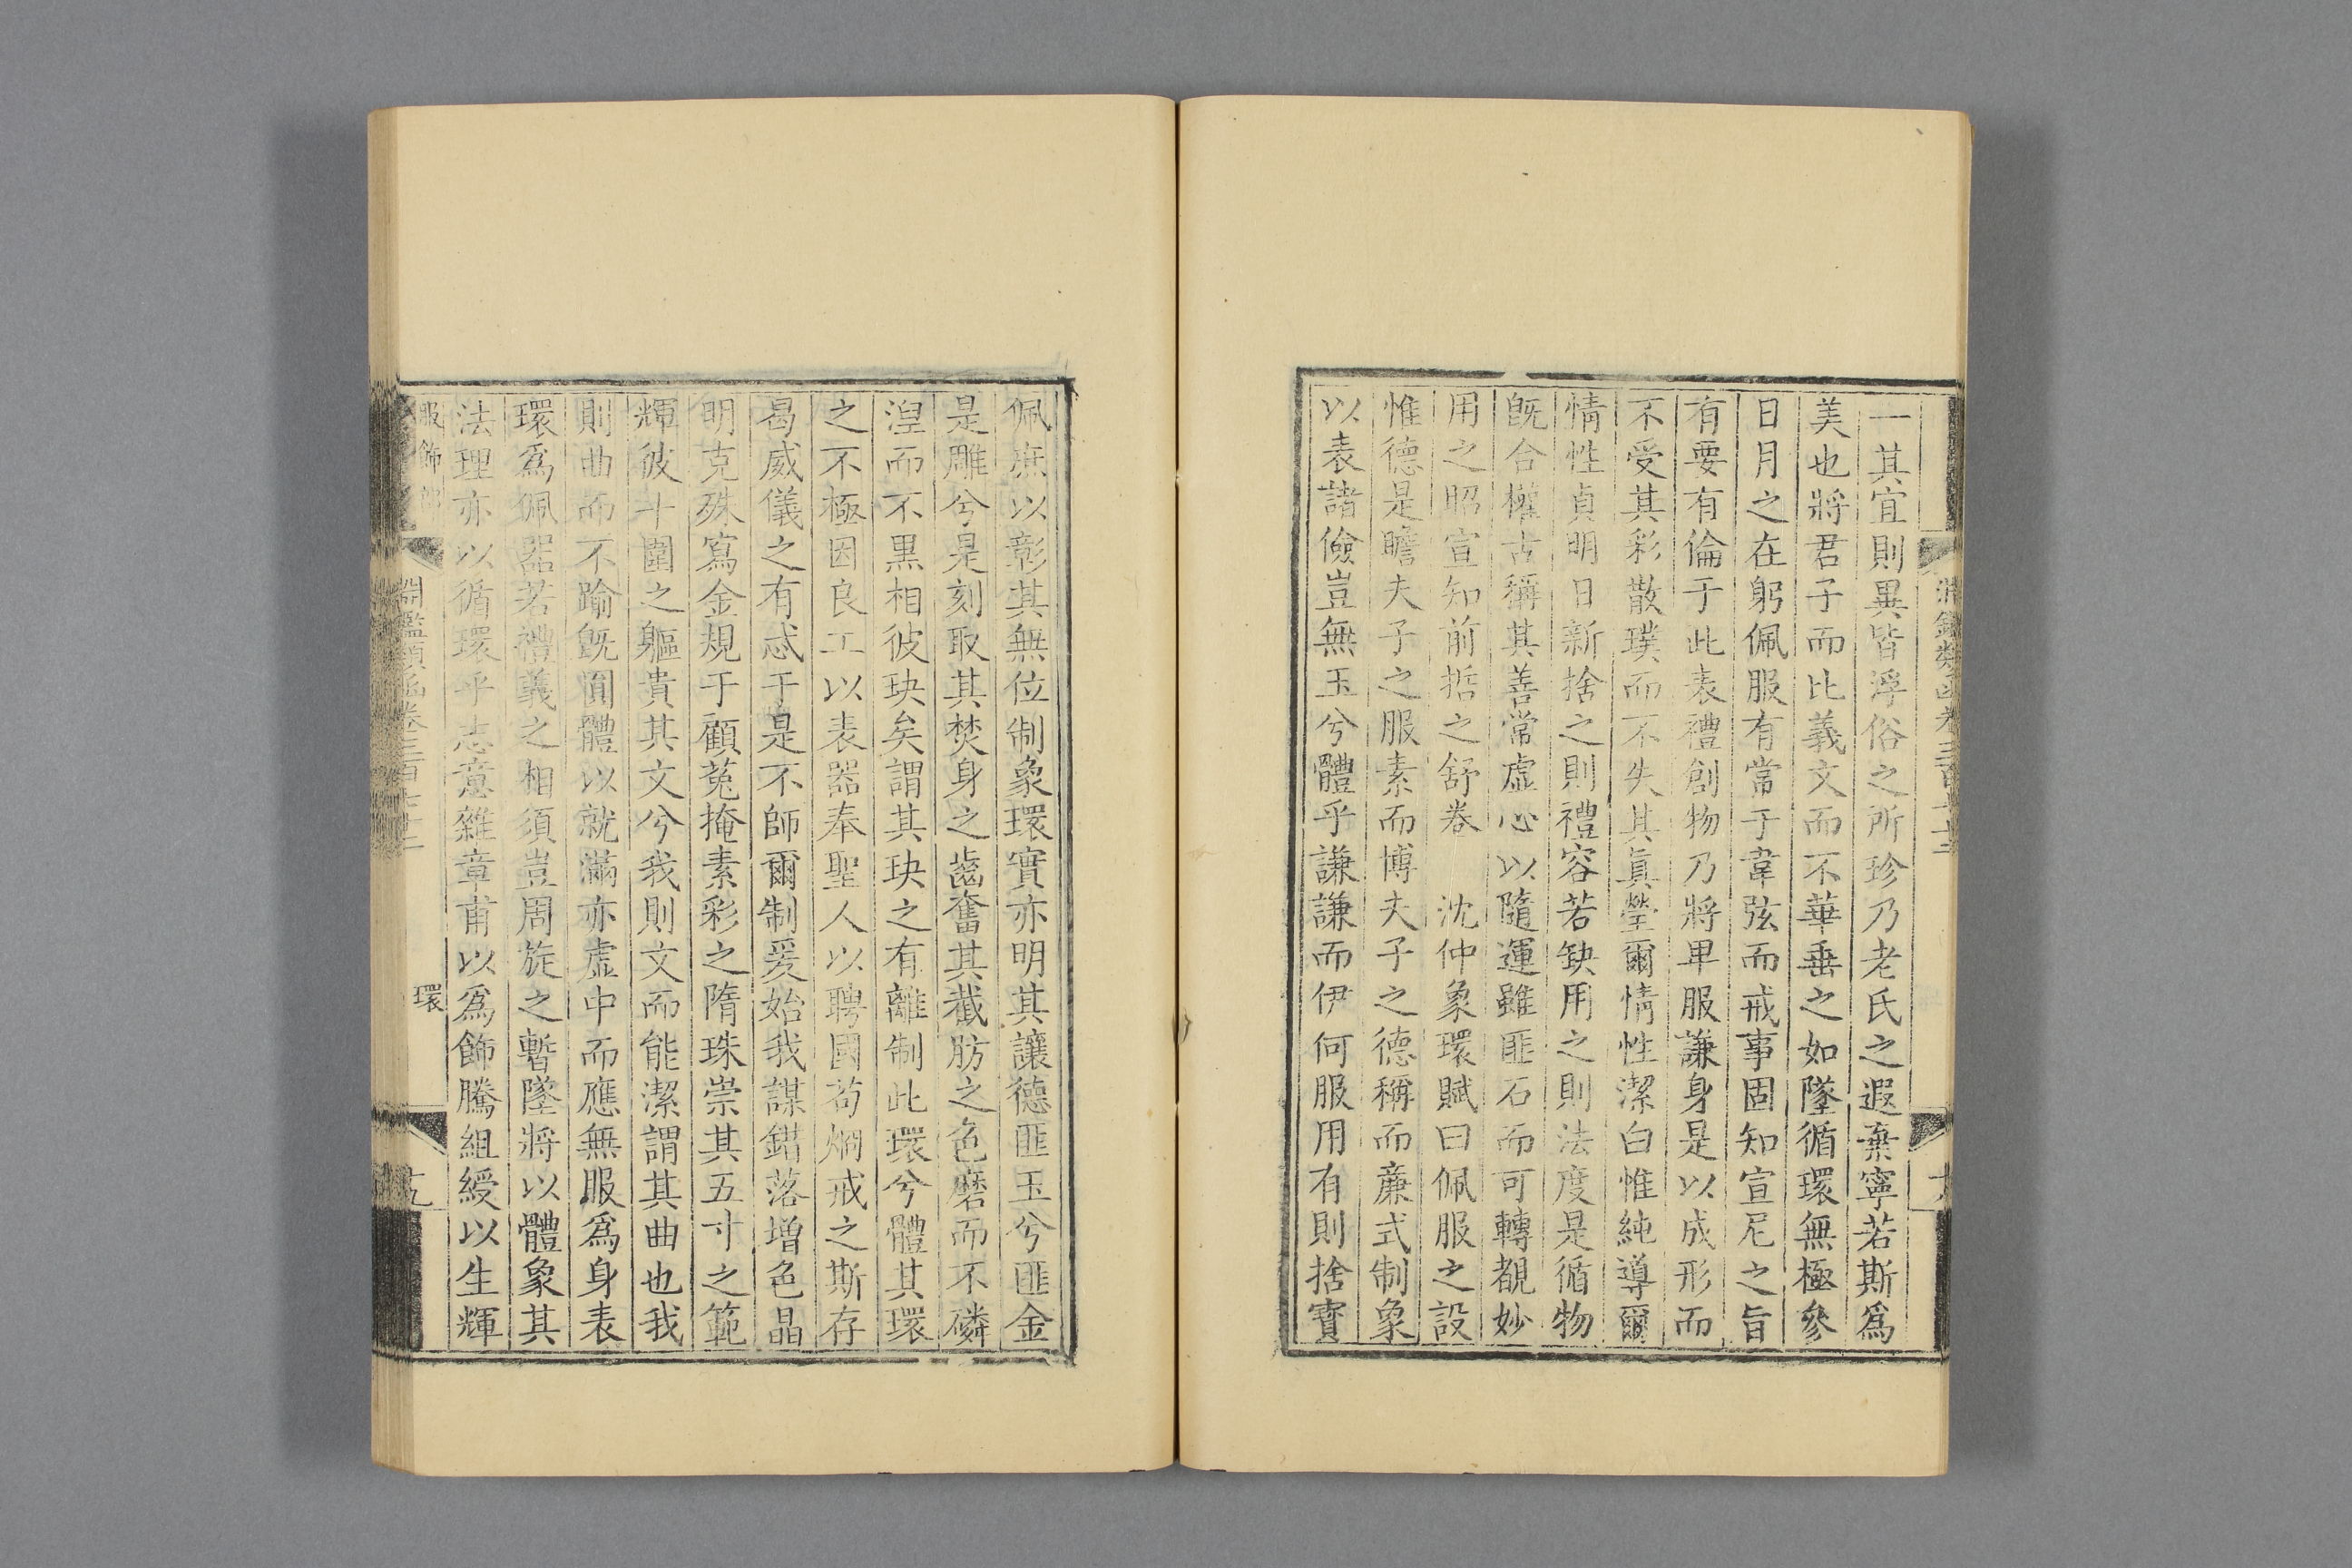 一其宜則異皆浮俗之所珍乃老氏之遐棄寧若斯爲
美也將君子而比義文而不華垂之如墜循環無極參
日月之在躬佩服有常于韋弦而戒事固知宣尼之旨
有要有倫于此表禮創物乃將卑服謙身是以成形而
不受其彩散璞而不失其眞瑩爾情性潔白惟純導爾
情性貞明日新捨之則禮容若缺用之則法度是循物
旣合權古稱其善常虛心以隨運雖匪石而可轉覩妙
用之昭宣知前哲之舒卷 沈仲象環賦曰佩服之設
惟德是瞻夫子之服素而博夫子之德稱而亷式制象
以表諸儉豈無玉兮體乎謙謙而伊何服用有則捨寶
佩庶以彰其無位制象環實亦明其讓德匪玉兮匪金
是雕兮是刻取其焚身之齒奮其截肪之色磨而不磷
湼而不黑相彼玦矣謂其玦之有離制此環兮體其環
之不極因良工以表器奉聖人以聘國苟烱戒之斯存
曷威儀之有忒于是不師爾制爰始我謀錯落增色晶
明克殊寫金規于顧菟掩素彩之隋珠崇其五寸之範
輝彼十圍之軀貴其文兮我則文而能潔謂其曲也我
則曲而不踰旣圓體以就滿亦虛中而應無服爲身表
環爲佩器若禮義之相須豈周旋之暫墜將以體象其
法理亦以循環乎志意雜章甫以爲飾騰組綬以生輝
服飾部 淵鑑類函卷三百七十二 環